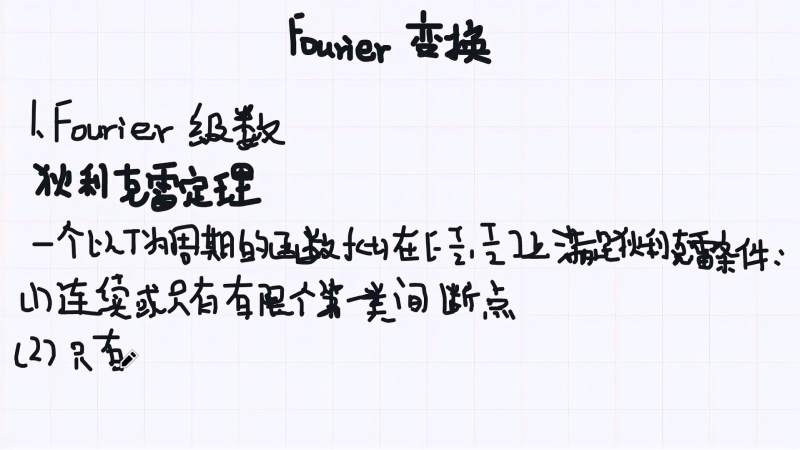 Fourier 变换
1、Fourier 级数
狄利克雷定理
一个以T为周期的函数f(t)在[-T/2,T/2]上满足狄利克雷条件:
(1)连续或只有有限个第一类间断点
(2)只有